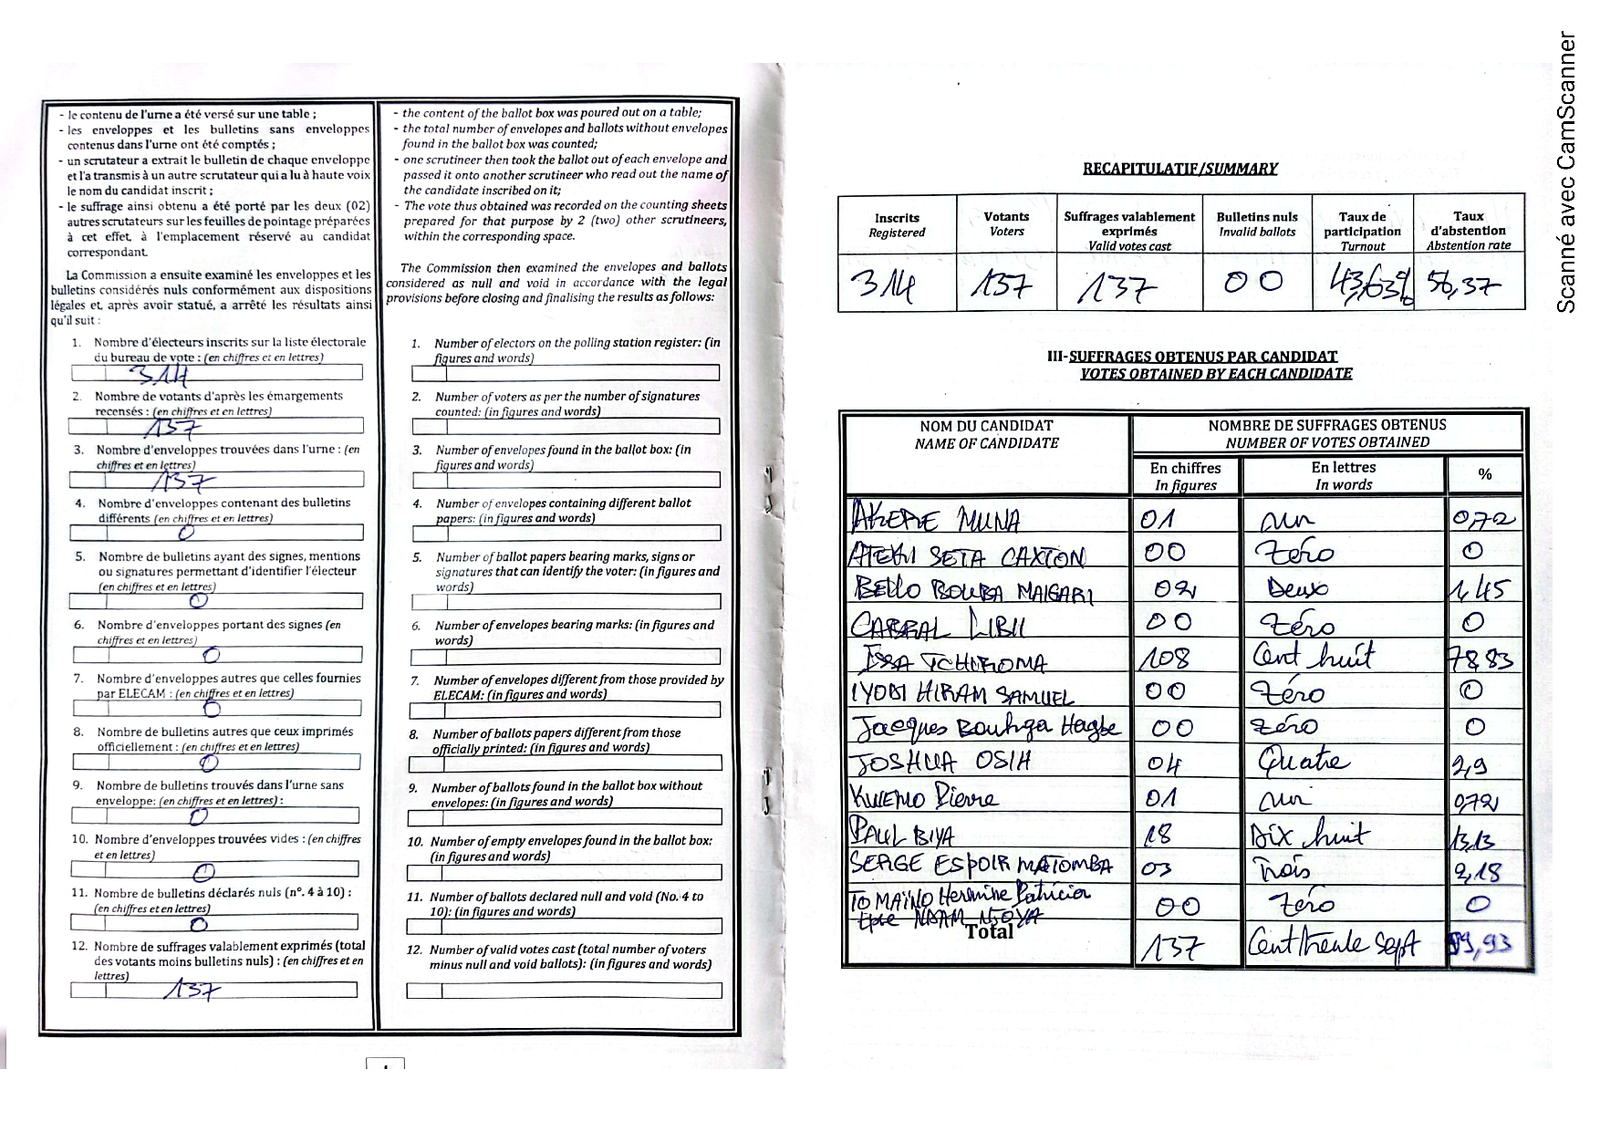 - le contenu de l'urne a été versé sur une table ;
- les enveloppes et les bulletins sans enveloppes
contenus dans l'urne ont été comptés ;
- un scrutateur a extrait le bulletin de chaque enveloppe
et l'a transmis à un autre scrutateur qui a lu à haute voix
le nom du candidat inscrit ;
- le suffrage ainsi obtenu a été porté par les deux (02)
autres scrutateurs sur les feuilles de pointage préparées
à cet effet, à l'emplacement réservé au candidat
correspondant.
La Commission a ensuite examiné les enveloppes et les
bulletins considérés nuls conformément aux dispositions
légales et, après avoir statué, a arrêté les résultats ainsi
qu'il suit :
1. Nombre d'électeurs inscrits sur la liste électorale
du bureau de vote : (en chiffres et en lettres)
314
2. Nombre de votants d'après les émargements
recensés : (en chiffres et en lettres)
137
3. Nombre d'enveloppes trouvées dans l'urne : (en
chiffres et en lettres)
137
4. Nombre d'enveloppes contenant des bulletins
différents (en chiffres et en lettres)
0
5. Nombre de bulletins ayant des signes, mentions
ou signatures permettant d'identifier l'électeur
(en chiffres et en lettres)
0
6. Nombre d'enveloppes portant des signes (en
chiffres et en lettres)
0
7. Nombre d'enveloppes autres que celles fournies
par ELECAM : (en chiffres et en lettres)
0
8. Nombre de bulletins autres que ceux imprimés
officiellement : (en chiffres et en lettres)
0
9. Nombre de bulletins trouvés dans l'urne sans
enveloppe: (en chiffres et en lettres) :
0
10. Nombre d'enveloppes trouvées vides : (en chiffres
et en lettres)
0
11. Nombre de bulletins déclarés nuls (n°. 4 à 10) :
(en chiffres et en lettres)
0
12. Nombre de suffrages valablement exprimés (total
des votants moins bulletins nuls) : (en chiffres et en
lettres)
137
- the content of the ballot box was poured out on a table;
- the total number of envelopes and ballots without envelopes
found in the ballot box was counted;
- one scrutineer then took the ballot out of each envelope and
passed it onto another scrutineer who read out the name of
the candidate inscribed on it;
- The vote thus obtained was recorded on the counting sheets
prepared for that purpose by 2 (two) other scrutineers,
within the corresponding space.
The Commission then examined the envelopes and ballots
considered as null and void in accordance with the legal
provisions before closing and finalising the results as follows:
1. Number of electors on the polling station register: (in
figures and words)
2. Number of voters as per the number of signatures
counted: (in figures and words)
3. Number of envelopes found in the ballot box: (in
figures and words)
4. Number of envelopes containing different ballot
papers: (in figures and words)
5. Number of ballot papers bearing marks, signs or
signatures that can identify the voter: (in figures and
words)
6. Number of envelopes bearing marks: (in figures and
words)
7. Number of envelopes different from those provided by
ELECAM: (in figures and words)
8. Number of ballots papers different from those
officially printed: (in figures and words)
9. Number of ballots found in the ballot box without
envelopes: (in figures and words)
10. Number of empty envelopes found in the ballot box:
(in figures and words)
11. Number of ballots declared null and void (No. 4 to
10): (in figures and words)
12. Number of valid votes cast (total number of voters
minus null and void ballots): (in figures and words)
RECAPITULATIF/SUMMARY
Inscrits Votants Suffrages valablement exprimés Bulletins nuls Taux de participation Taux d'abstention
Registered Voters Valid votes cast Invalid ballots Turnout Abstention rate
314 137 137 00 43,63% 56,37
III-SUFFRAGES OBTENUS PAR CANDIDAT
VOTES OBTAINED BY EACH CANDIDATE
NOM DU CANDIDAT NOMBRE DE SUFFRAGES OBTENUS
NAME OF CANDIDATE NUMBER OF VOTES OBTAINED
En chiffres En lettres %
In figures In words
AKERE MUNA 01 un 0,72
ATEKI SETA CAXTON 00 Zéro 0
BELLO BOUBA MAIGARI 02 Deux 1,45
CABRAL LIBII 00 Zéro 0
ISSA TCHIROMA 108 Cent huit 78,83
IYODI HIRAM SAMUEL 00 Zéro 0
Jacques Bouhga Hagbe 00 Zéro 0
JOSHUA OSIH 04 Quatre 2,9
KWEMO Pierre 01 un 0,72
PAUL BIYA 18 Dix huit 13,13
SERGE ESPOIR MATOMBA 03 Trois 2,18
TOMAÏNO Hermine Patricia 00 Zéro 0
Epse NDAM NJOYA
Total 137 Cent trente sept 99,93
Scanné avec CamScanner